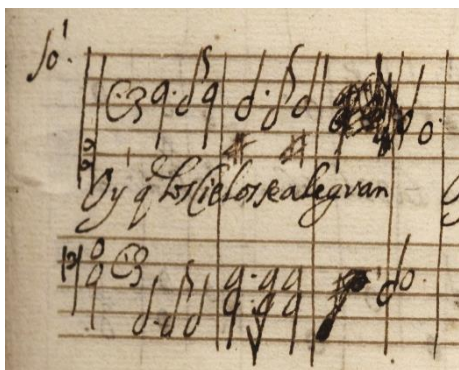 So. 1
Oy q̃ los Cielos se alegran